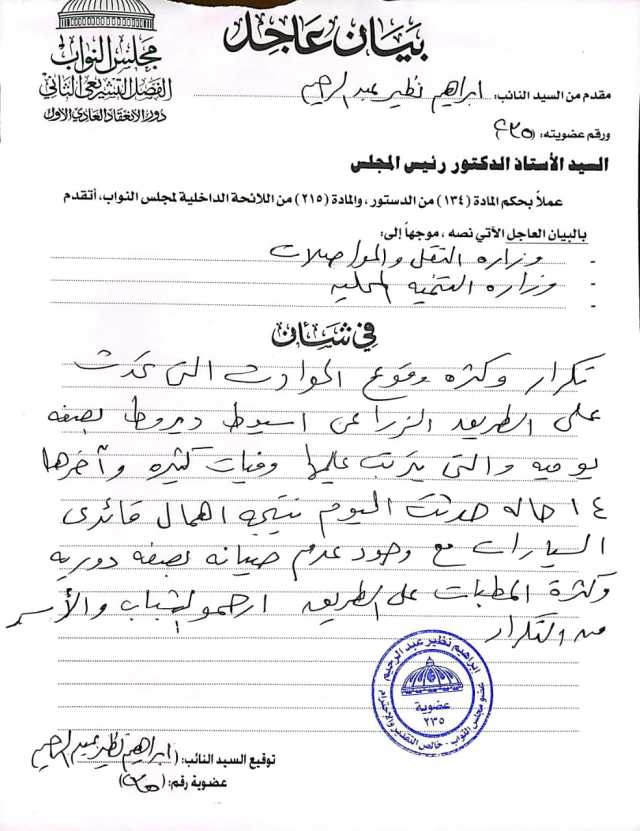 بيان عاجل
مجلس النواب
الفصل التشريعي الثاني
دور الانعقاد العادي الأول
مقدم من السيد النائب: ابراهيم نظير عبد الرحيم
ورقم عضويته: (٢٣٥)
السيد الأستاذ الدكتور رئيس المجلس
عملاً بحكم المادة (١٣٤) من الدستور، والمادة (٢١٥) من اللائحة الداخلية لمجلس النواب، أتقدم
بالبيان العاجل الآتي نصه، موجهاً إلى:
- وزاره النقل والمواصلات
- وزاره التنميه المحليه
-
في شأن
تكرار وكثره وقوع الحوادث التى تحدث
على الطريق الزراعى اسيوط ديروط بصفه
يوميه والتى يترتب عليها وفيات كثيره وآخرها
١٤ حاله حدثت اليوم نتيجه اهمال قائدى
السيارات مع وجود عدم صيانه بصفه دوريه
وكثرة المطبات على الطريق ارحمو الشباب والأسر
من التكرار
ابراهيم نظير عبد الرحيم
عضوية
٢٣٥
عضو مجلس النواب - خالص التقدير والاحترام
توقيع السيد النائب: (ابراهيم نظير عبد الرحيم
عضوية رقم: (٢٣٥)